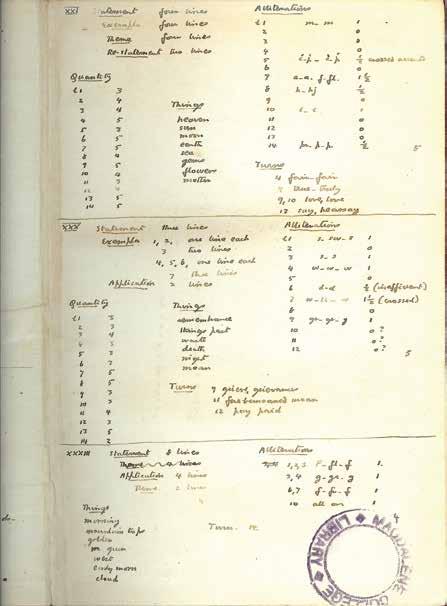 XXI Statement four lines
Example four lines
Theme four lines
Re-statement two lines
Quantity
L1 3
2 4
3 4
4 5
5 3
6 5
7 5
8 4
9 5
10 4
11 3
12 4
13 5
14 5
Things
heaven
sun
moon
earth
sea
gems
flowers
mother
Alliterations
L1 m-m 1
2 0
3 0
4 0
5 ½ crossed accents
6 0
7 a-a. f-fl. 1½
8 h-hj ½
9 0
10 1
11 0
12 0
13 0
14 p-p-p ½
5
Turns
4 fair-fair
9 true-truly
9, 10 love, love
12 say, hearsay
XXX Statement three lines
Examples 1, 2, one line each
3 two lines
4, 5, 6, one line each
7 three lines
Application 2 lines
Quantity
L1 3
2 3
3 4
4 3
5 3
6 3
7 5
8 5
9 3
10 3
11 4
12 3
13 5
14 2
Things
remembrance
things past
waste
death
night
moan
Turns 9 grieve, grievances
11 fore-bemoaned moan
12 pay paid
Alliterations
L1 s-sw-s 1
2 0
3 s-s 1
4 w-w-w 1
5 0
6 d-d ½ (inefficient)
7 1½ (crossed)
8 0
9 gr-gr-g 1
10 0?
11 0?
12 0?
5
XXXIII Statement 8 lines
Application 4 lines
Theme 2 lines
Things
morning
mountain tops
golden
green
west
cloud
Turns
Alliterations
1, 2, 3 f-fl-f 1.
3, 4 g-gr-g 1
6, 7 f-f-f 1
14 1
4
MAGDALENE COLLEGE LIBRARY